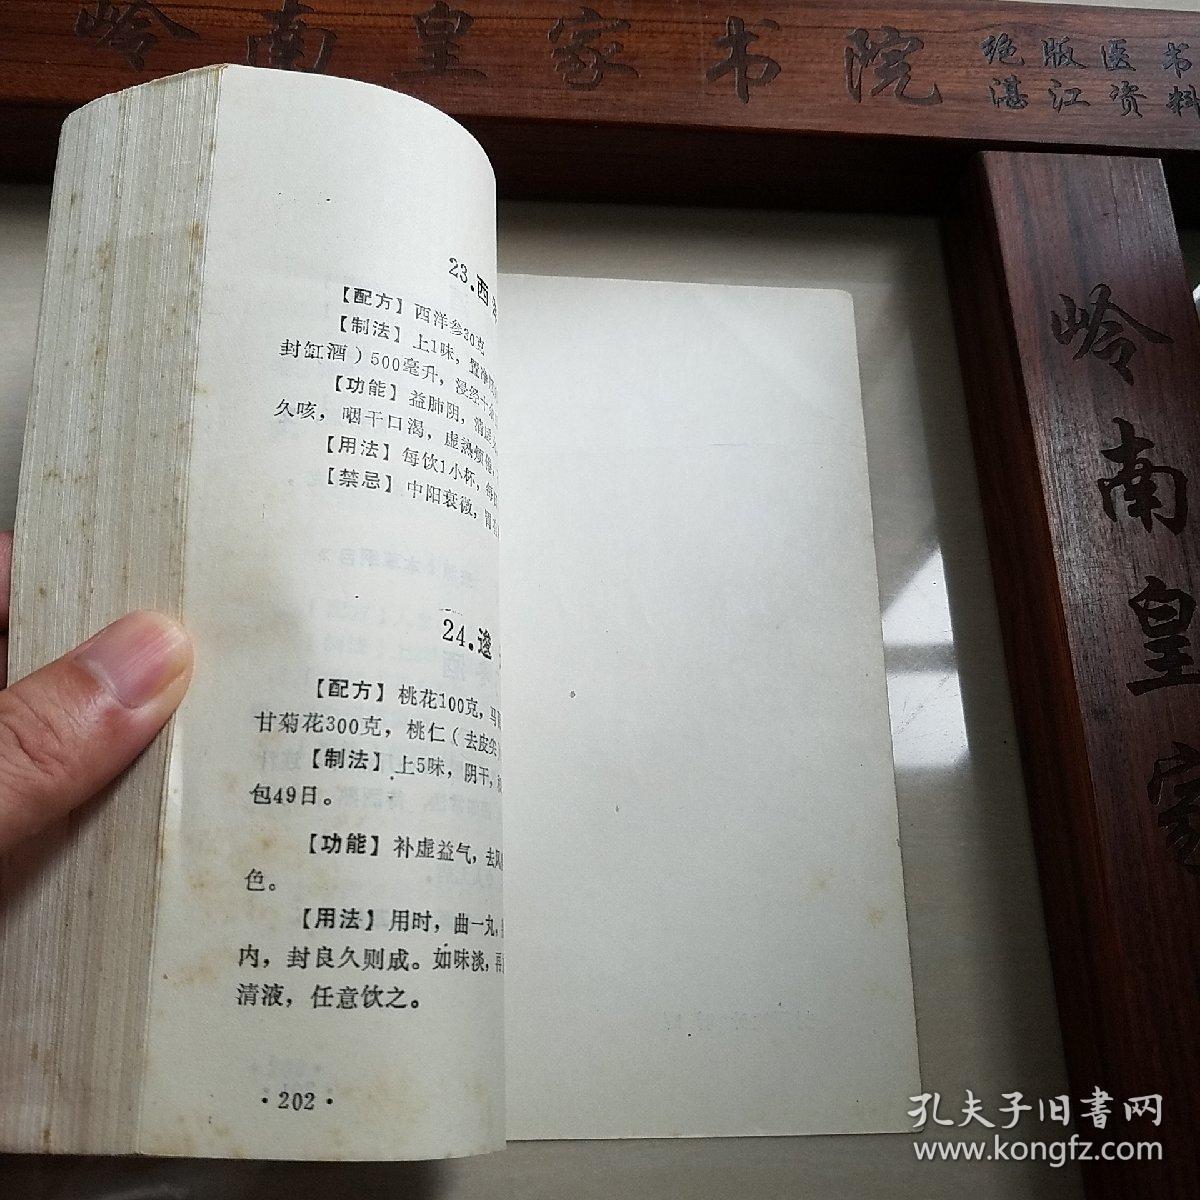 岭南皇家书院
绝版医书
湛江资料
岭南皇家
23.西
【配方】西洋参30克
【制法】上1味，置净
封缸酒）500毫升，浸经十
【功能】益肺阴，清虚
久咳，咽干口渴，虚热烦
【用法】每饮1小杯，每
【禁忌】中阳衰微，胃
24.逡
【配方】桃花100克，马
甘菊花300克，桃仁（去皮尖
【制法】上5味，阴干，
包49日。
【功能】补虚益气，去风
色。
【用法】用时，曲一丸，
内，封良久则成。如味淡，再
清液，任意饮之。
·202·
孔夫子旧书网
www.kongfz.com